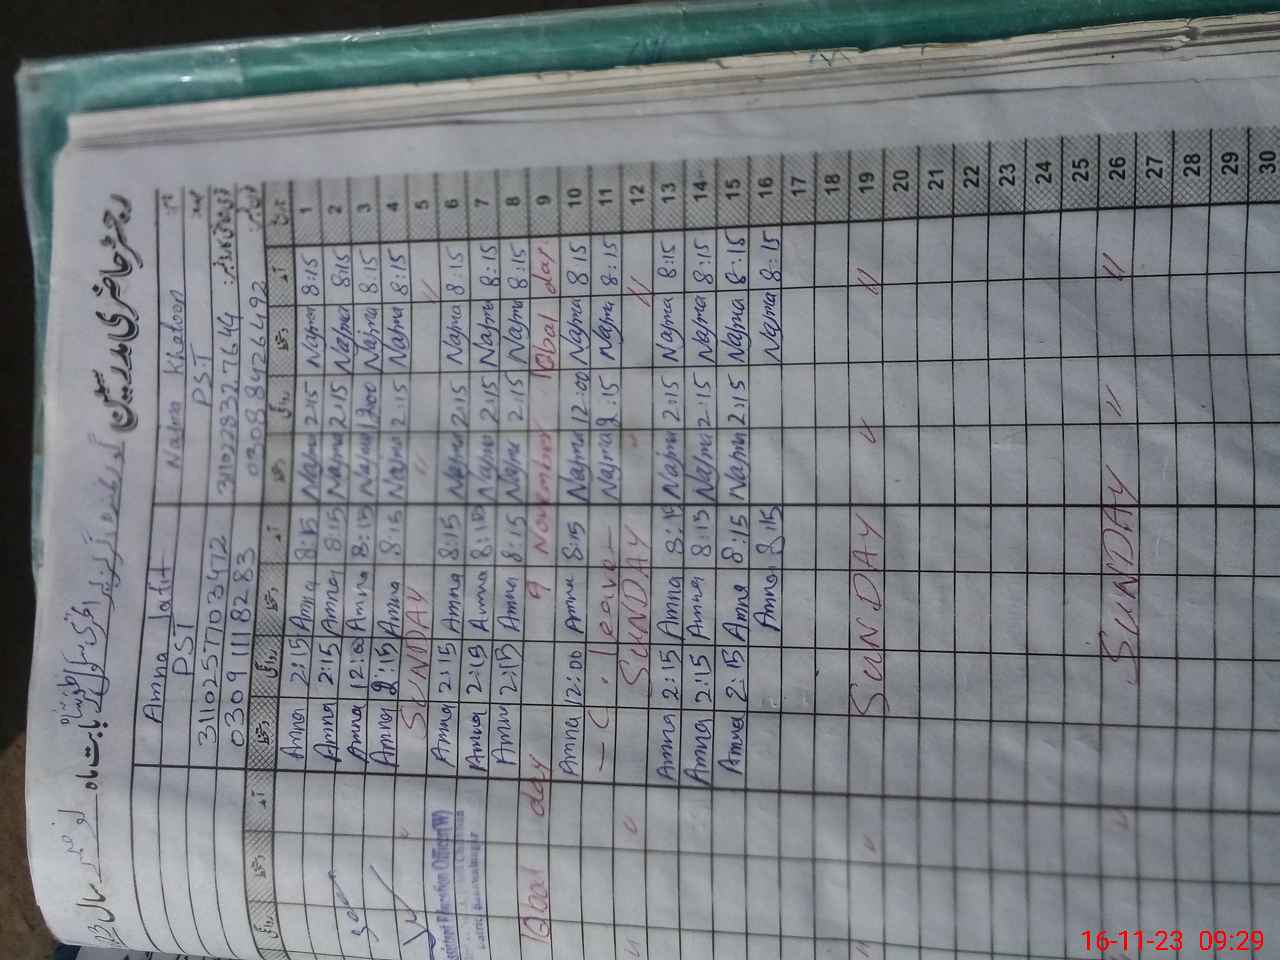 رجسٹر حاضری مدرسین
بابت ماہ نومبر سال 23
Najna Khatoon
Amna Latif
PST
PST
3102577703472
0309 1118283
03088426492
تاریخ آمد دستخط روانگی دستخط آمد دستخط روانگی دستخط آمد دستخط روانگی
1 8:15 Najna 2:15 Najna 8:15 Amna 2:15 Amna
2 8:15 Najna 2:15 Najna 8:15 Amna 2:15 Amna
3 8:15 Najna 1200 Najna 8:15 Amna 12:00 Amna
4 8:15 Najna 2:15 Najna 8:15 Amna 2:15 Amna
5 〃 〃 SUNDAY 〃
6 8:15 Najna 2:15 Najna 8:15 Amna 2:15 Amna
7 8:15 Najna 2:15 Najna 8:15 Amna 2:15 Amna
8 8:15 Najna 2:15 Najna 8:15 Amna 2:15 Amna
9 9 November Iqbal day Iqbal day
10 8:15 Najna 12:00 Najna 8:15 Amna 12:00 Amna
11 8:15 Najna 2:15 Najna — C. leave —
12 〃 〃 SUNDAY 〃 〃
13 8:15 Najna 2:15 Najna 8:15 Amna 2:15 Amna
14 8:15 Najna 2:15 Najna 8:15 Amna 2:15 Amna
15 8:15 Najna 2:15 Najna 8:15 Amna 2:15 Amna
16 8:15 Najna 8:15 Amna
17
18
19 〃 〃 SUNDAY 〃 〃
20
21
22
23
24
25
26 〃 〃 SUNDAY 〃
27
28
29
30
16-11-23 09:29